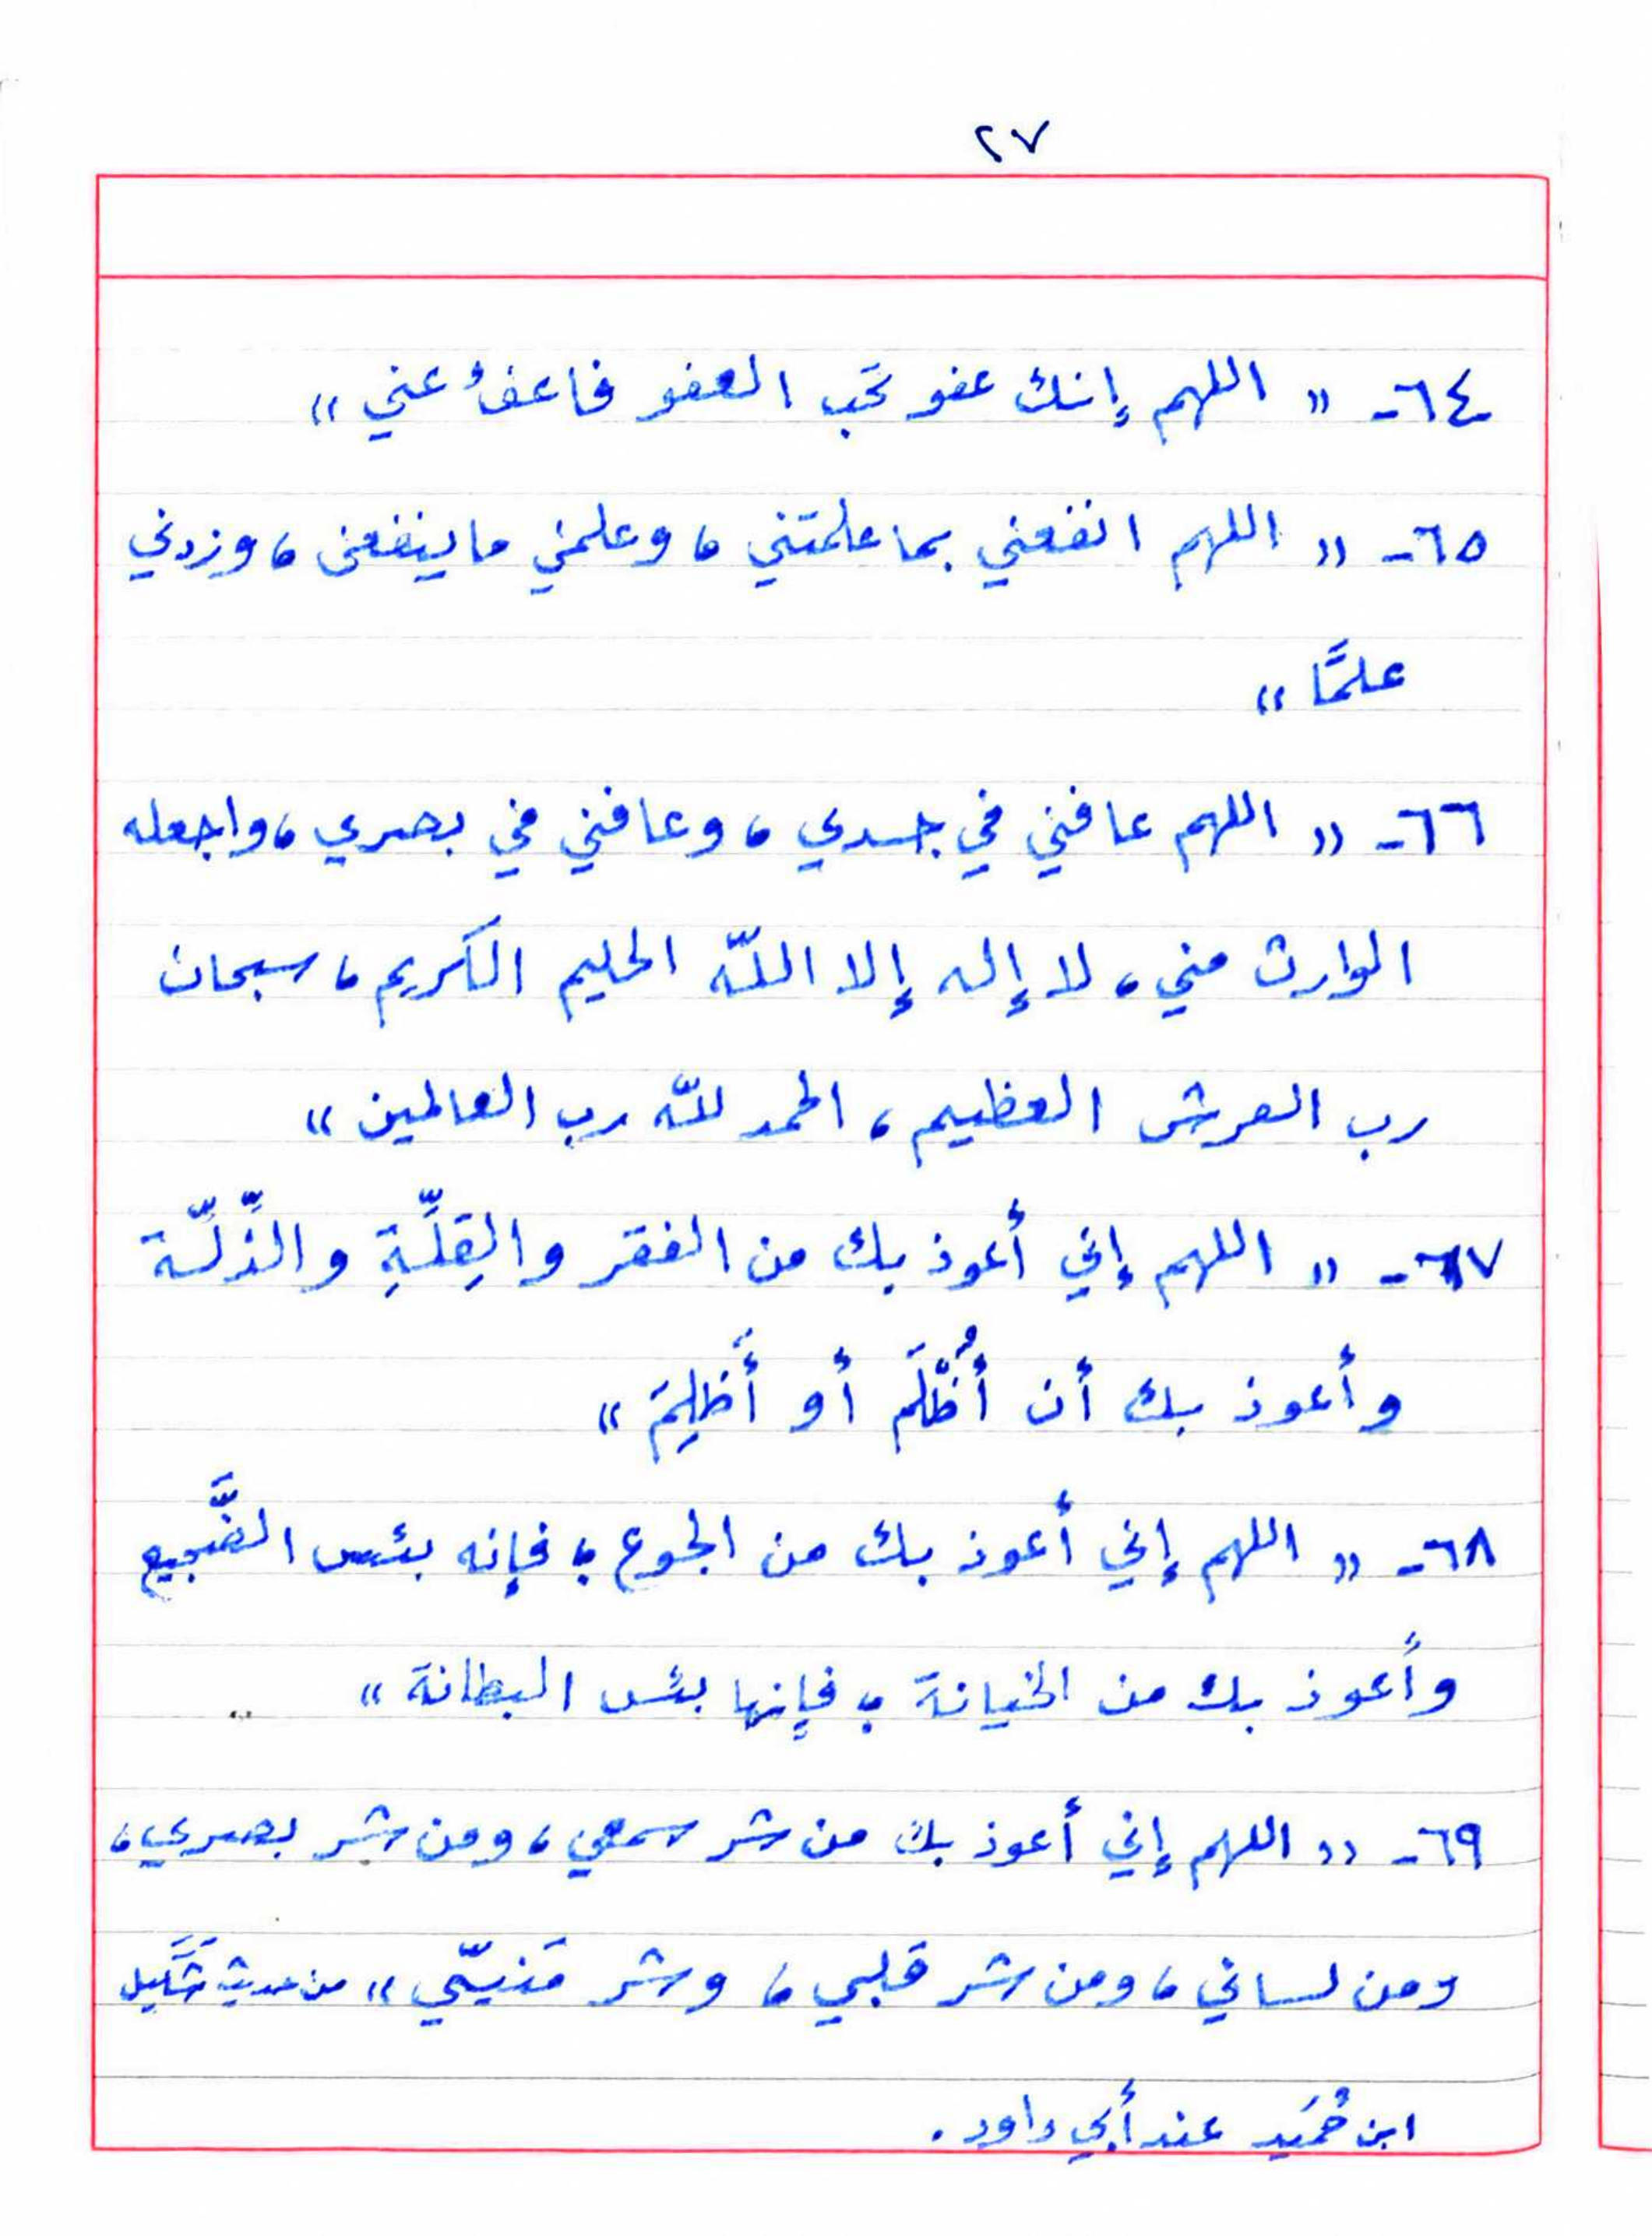 ٢٧
٦٤- « اللهم إنك عفو تحَب العفو فاعفُ عني »
٦٥- « اللهم انفعني بما علمتني، وعلمني ما ينفعني، وزدني
علمًا »
٦٦- « اللهم عافني في جسدي، وعافني في بصري، واجعله
الوارث مني، لا إله إلا اللّه الحليم الكريم، سبحان
رب العرش العظيم، الحمد للّه رب العالمين »
٦٧- « اللهم إني أعوذ بك من الفقر والقِلَّةِ والذِّلَّة
وأعوذ بك أن أُظْلَم أو أَظلِمَ »
٦٨- « اللهم إني أعوذ بك من الجوع؛ فإنه بئس الضَّجيع
وأعوذ بك من الخيانة؛ فإنها بئس البطانة »
٦٩- « اللهم إني أعوذ بك من شر سمعي، ومن شر بصري،
ومن لساني، ومن شر قلبي، وشر مَنيّي » من حديث شَكَل
ابن حُمَيد عند أبي داود .